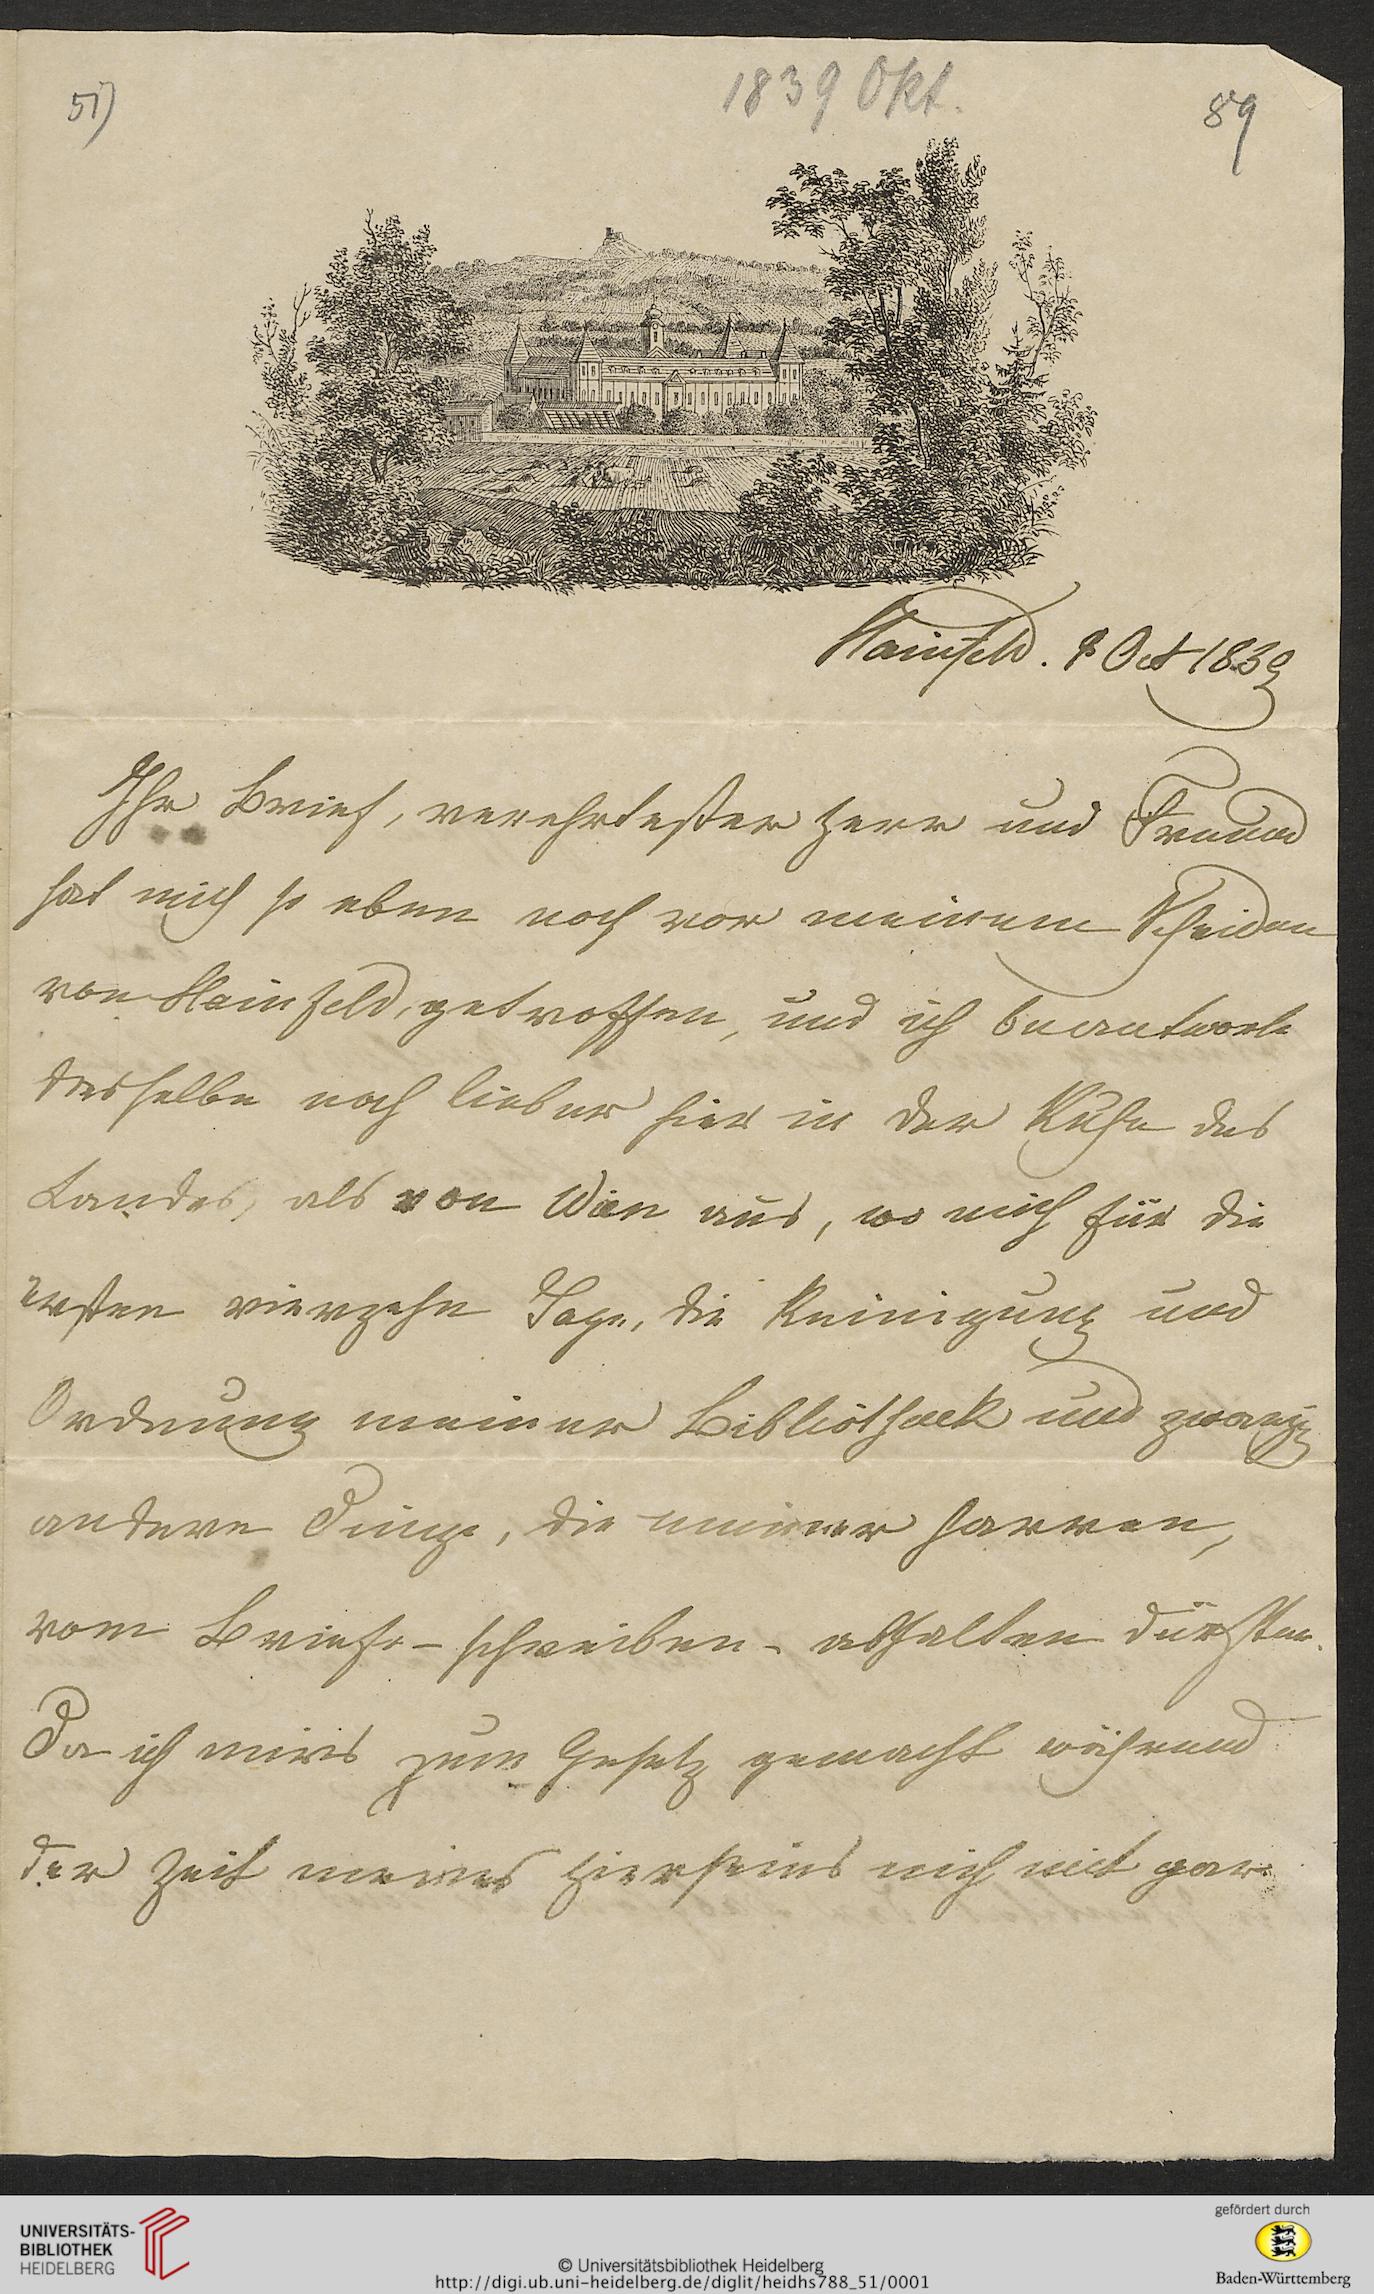 51)
1839 Okt.
89
Hainfeld. 8 Oct 1839
Ihr Brief, verehrtester Herr und Freund
hat mich so eben noch vor meinem Scheiden
von Hainfeld, getroffen, und ich beantworte
desselbe noch lieber hier in der Ruhe des
Landes, als von Wien aus, wo mich für die
ersten vierzehn Tage, die Reinigung und
Ordnung meiner Bibliothek und
andere Dinge, die meiner harren,
vom Briefe-schreiben abhalten dürften.
Da ich mirs zum Gesetz gemacht während
der Zeit meines Hierseins mich mit gar
UNIVERSITÄTS-
BIBLIOTHEK
HEIDELBERG
© Universitätsbibliothek Heidelberg
http://digi.ub.uni-heidelberg.de/diglit/heidhs788_51/0001
gefördert durch
Baden-Württemberg